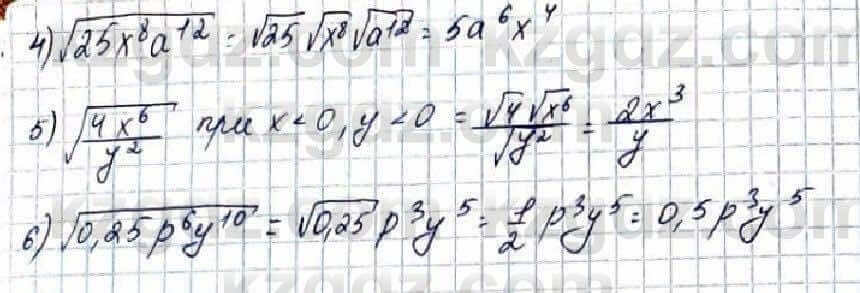 4) √25x⁸a¹² = √25 √x⁸ √a¹² = 5a⁶x⁴
5) √4x⁶/y² при x < 0, y < 0 = √4 √x⁶/√y² = 2x³/y
6) √0,25p⁶y¹⁰ = √0,25 p³y⁵ = 1/2 p³y⁵ = 0,5p³y⁵